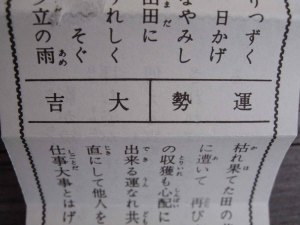 りつずく
日かげ
なやみし
山田に
れしく
そぐ
立の雨
運勢 大吉
枯れ果てた田の
に遭いて 再び
の収獲も心配に
出来る運なれ共
直にして他人を
仕事大事とはげ